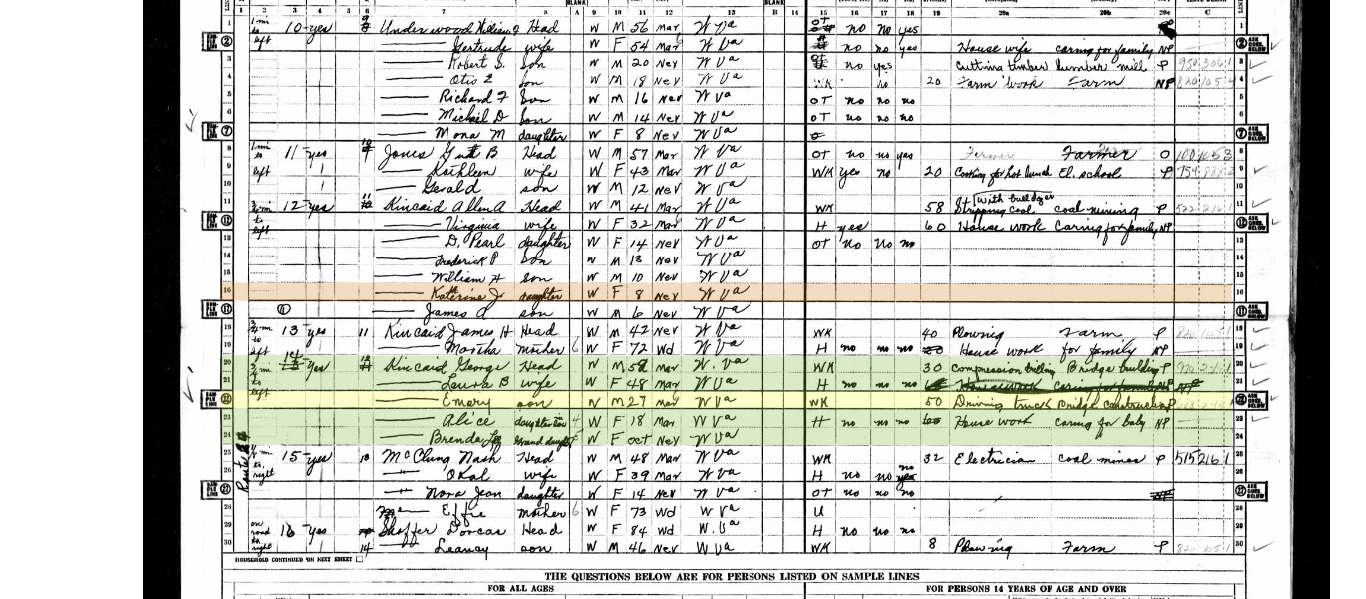 LINE 1 2 3 4 5 6 7 8 A 9 10 11 12 13 B 14 15 16 17 18 19 20a 20b 20c C LINE
1 10 yes Underwood William Head W M 56 Mar W Va OT no no yes 1
left 2 Gertrude wife W F 54 Mar W Va no no yes House wife caring for family NP 2
3 Robert S. son W M 20 Nev W Va OT no yes Cutting timber lumber mill P 3
4 Otis son W M 18 Nev W Va WK no 20 Farm work Farm NP 4
5 Richard F Son W M 16 Nev W Va OT no no no 5
6 Michael D Son W M 14 Nev W Va OT no no no 6
7 Mona M daughter W F 8 Nev W Va 7
8 11 yes Jones B Head W M 57 Mar W Va OT no no yes Farmer Farmer O 8
left 9 Kathleen wife W F 43 Mar W Va WK yes no 20 Cooking for hot lunch El. school P 9
10 Gerald son W M 12 Nev W Va 10
11 12 yes Kincaid Allen A Head W M 41 Mar W Va WK 58 Stripping Coal with bulldozer coal mining P 11
left 12 Virginia wife W F 32 Mar W Va H yes 60 House work Caring for family NP 12
13 D. Pearl daughter W F 14 Nev W Va OT no no no 13
14 Frederick P son W M 13 Nev W Va 14
15 William H son W M 10 Nev W Va 15
16 Katherine J daughter W F 8 Nev W Va 16
17 James A son W M 6 Nev W Va 17
18 13 yes 11 Kincaid James H Head W M 42 Nev W Va WK 40 Plowing Farm P 18
left 19 Martha mother 6 W F 72 Wd W Va H no no no House work for family NP 19
20 14 yes Kincaid George Head W M 52 Mar W. Va WK 30 compression Bridge building P 20
21 Laura B wife W F 48 Mar W Va H no no no Housework caring for family NP 21
left 22 Emery son W M 27 Mar W Va WK 50 Driving truck Bridge construction P 22
23 Alice daughter in law 4 W F 18 Mar W Va H no no no House work caring for baby NP 23
24 Brenda Lee Grand daughter W F Oct Nev W Va 24
25 15 yes 13 McClung Nash Head W M 48 Mar W Va WK 32 Electrician coal mines P 515 216 1 25
right 26 Okal wife W F 39 Mar W Va H no no no 26
27 Nora Jean daughter W F 14 Nev W Va OT no no no 27
28 Effie mother 6 W F 73 Wd W Va U 28
on road to right 29 16 yes Shaffer Dorcas Head W F 84 Wd W. Va H no no no 29
30 14 Leanay son W M 46 Nev W Va WK 8 Plowing Farm P 30
HOUSEHOLD CONTINUED ON NEXT SHEET
THE QUESTIONS BELOW ARE FOR PERSONS LISTED ON SAMPLE LINES
FOR ALL AGES FOR PERSONS 14 YEARS OF AGE AND OVER